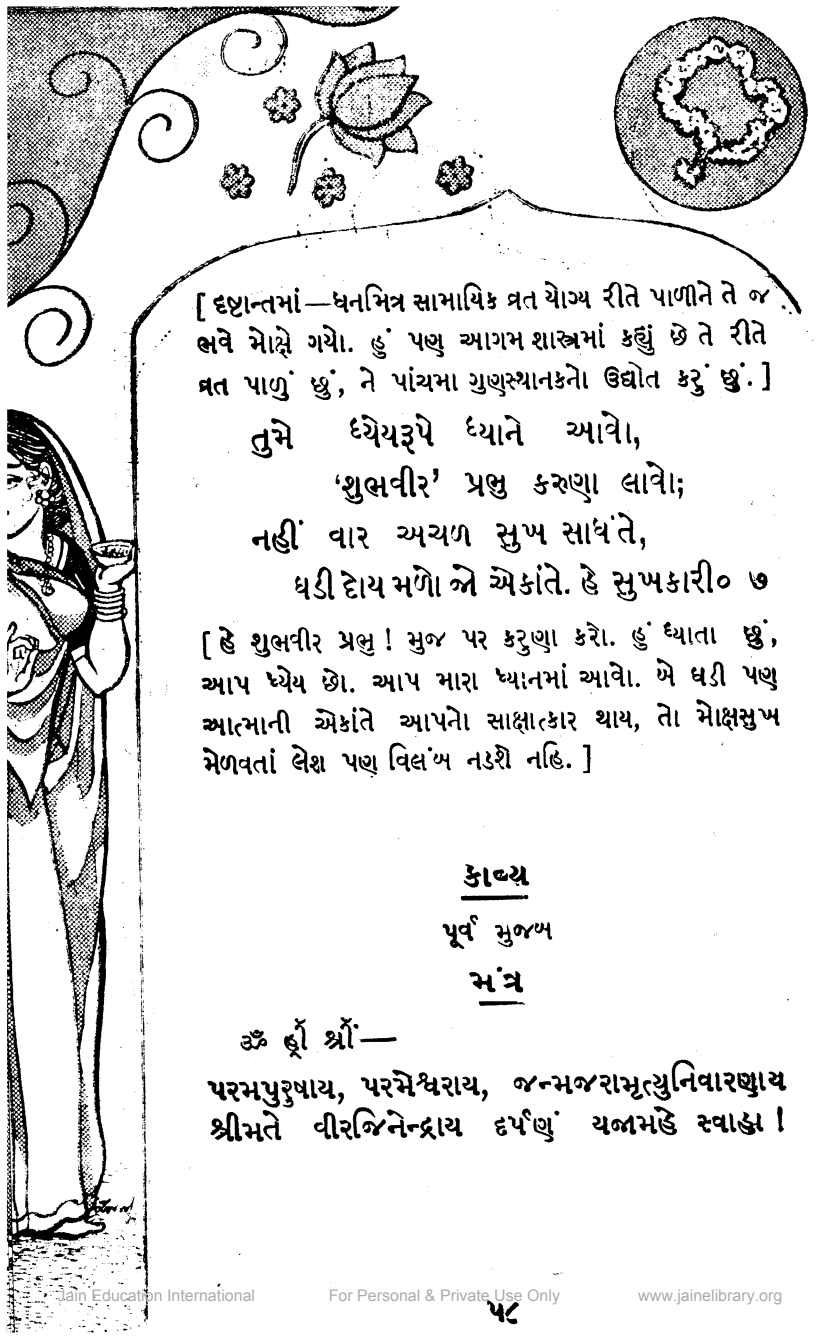 [ દૃષ્ટાન્તમાં—ધનમિત્ર સામાયિક વ્રત યોગ્ય રીતે પાળીને તે જ
ભવે મોક્ષે ગયો. હું પણ આગમ શાસ્ત્રમાં કહ્યું છે તે રીતે
વ્રત પાળું છું, ને પાંચમા ગુણસ્થાનકનો ઉદ્યોત કરું છું. ]
તુમે ધ્યેયરૂપે ધ્યાને આવો,
‘શુભવીર’ પ્રભુ કરુણા લાવો;
નહીં વાર અચળ સુખ સાધંતે,
ઘડી દોય મળો જો એકાંતે. હે સુખકારી૦ ૭
[ હે શુભવીર પ્રભુ ! મુજ પર કરુણા કરો. હું ધ્યાતા છું,
આપ ધ્યેય છો. આપ મારા ધ્યાનમાં આવો. બે ઘડી પણ
આત્માની એકાંતે આપનો સાક્ષાત્કાર થાય, તો મોક્ષસુખ
મેળવતાં લેશ પણ વિલંબ નડશે નહિ. ]
કાવ્ય
પૂર્વ મુજબ
મંત્ર
ૐ હ્રીઁ શ્રીઁ—
પરમપુરુષાય, પરમેશ્વરાય, જન્મજરામૃત્યુનિવારણાય
શ્રીમતે વીરજિનેન્દ્રાય દર્પણં યજામહે સ્વાહા !
Jain Education International For Personal & Private Use Only www.jainelibrary.org
૫૮